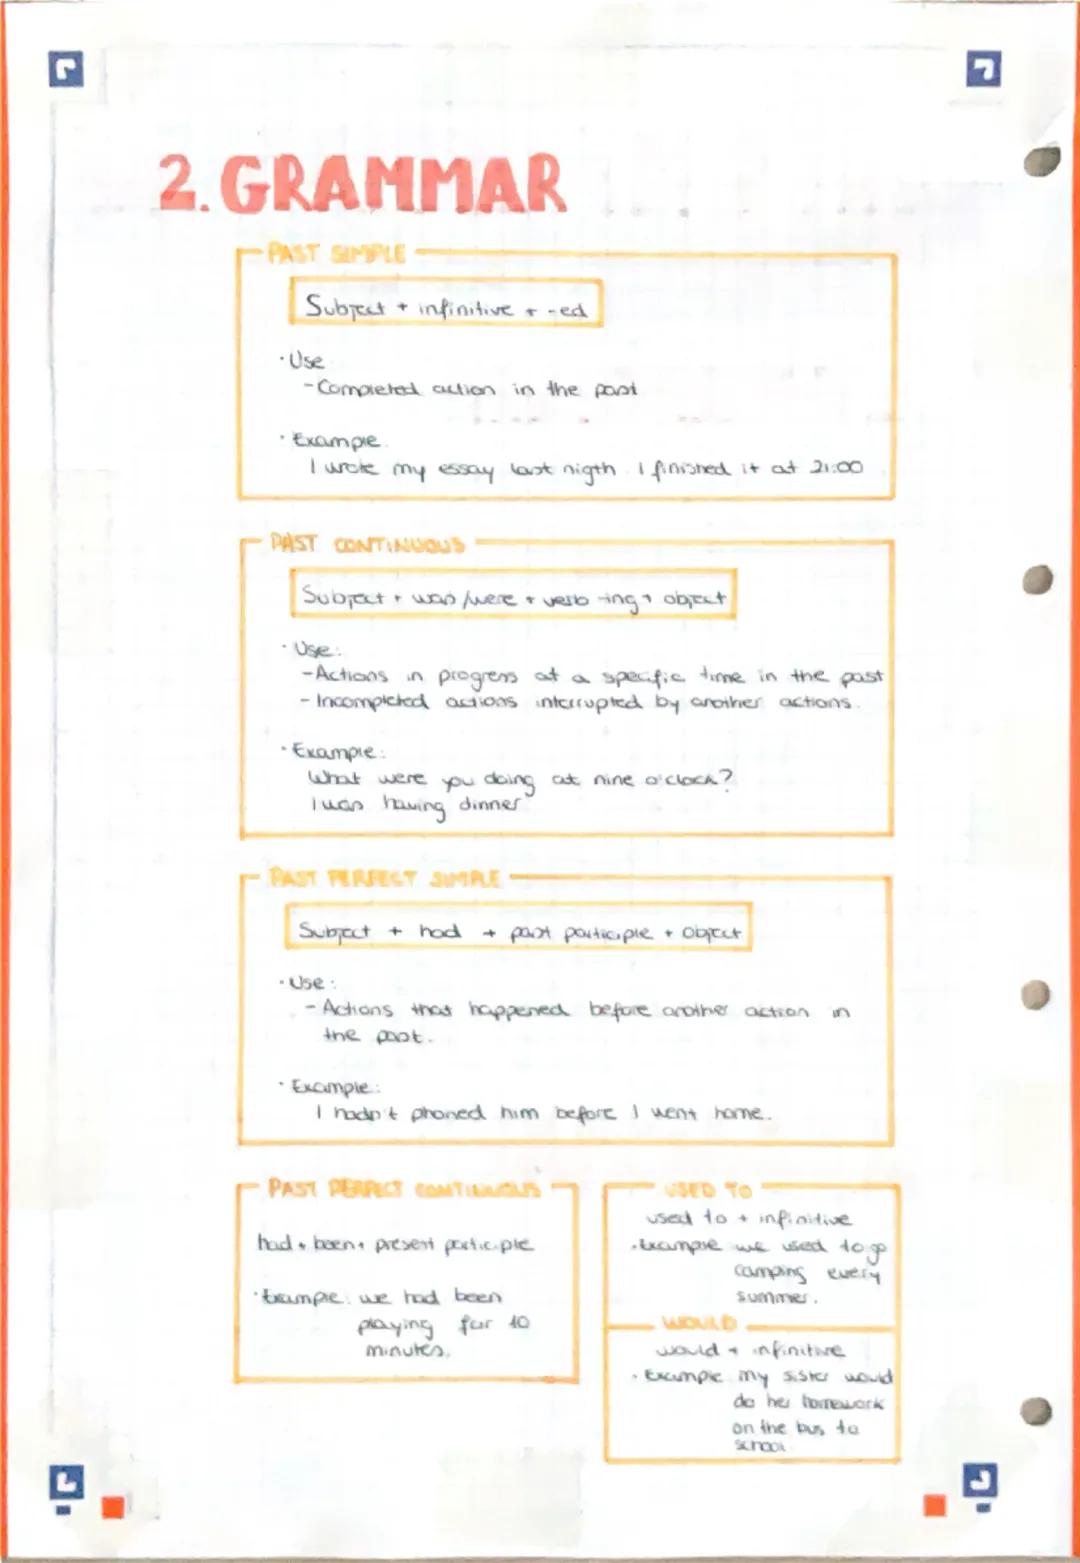 2. GRAMMAR
PAST SIMPLE
Subject + infinitive + -ed
· Use
- Completed action in the past
· Example.
I wrote my essay last nigth. I finished it at 21:00
PAST CONTINUOUS
Subject + was/were + verb -ing + object
· Use:
- Actions in progress at a specific time in the past
- Incompleted actions interrupted by another actions.
· Example:
What were you doing at nine o'clock?
I was having dinner
PAST PERFECT SIMPLE
Subject + had + past participle + object
· Use:
- Actions that happened before another action in
the past.
· Example:
I hadn't phoned him before I went home.
PAST PERFECT CONTINUOUS
had + been + present participle
· Example: we had been
playing for 10
minutes.
USED TO
used to + infinitive
· Example we used to go
camping every
summer.
WOULD
would + infinitive
· Example my sister would
do her homework
on the bus to
school